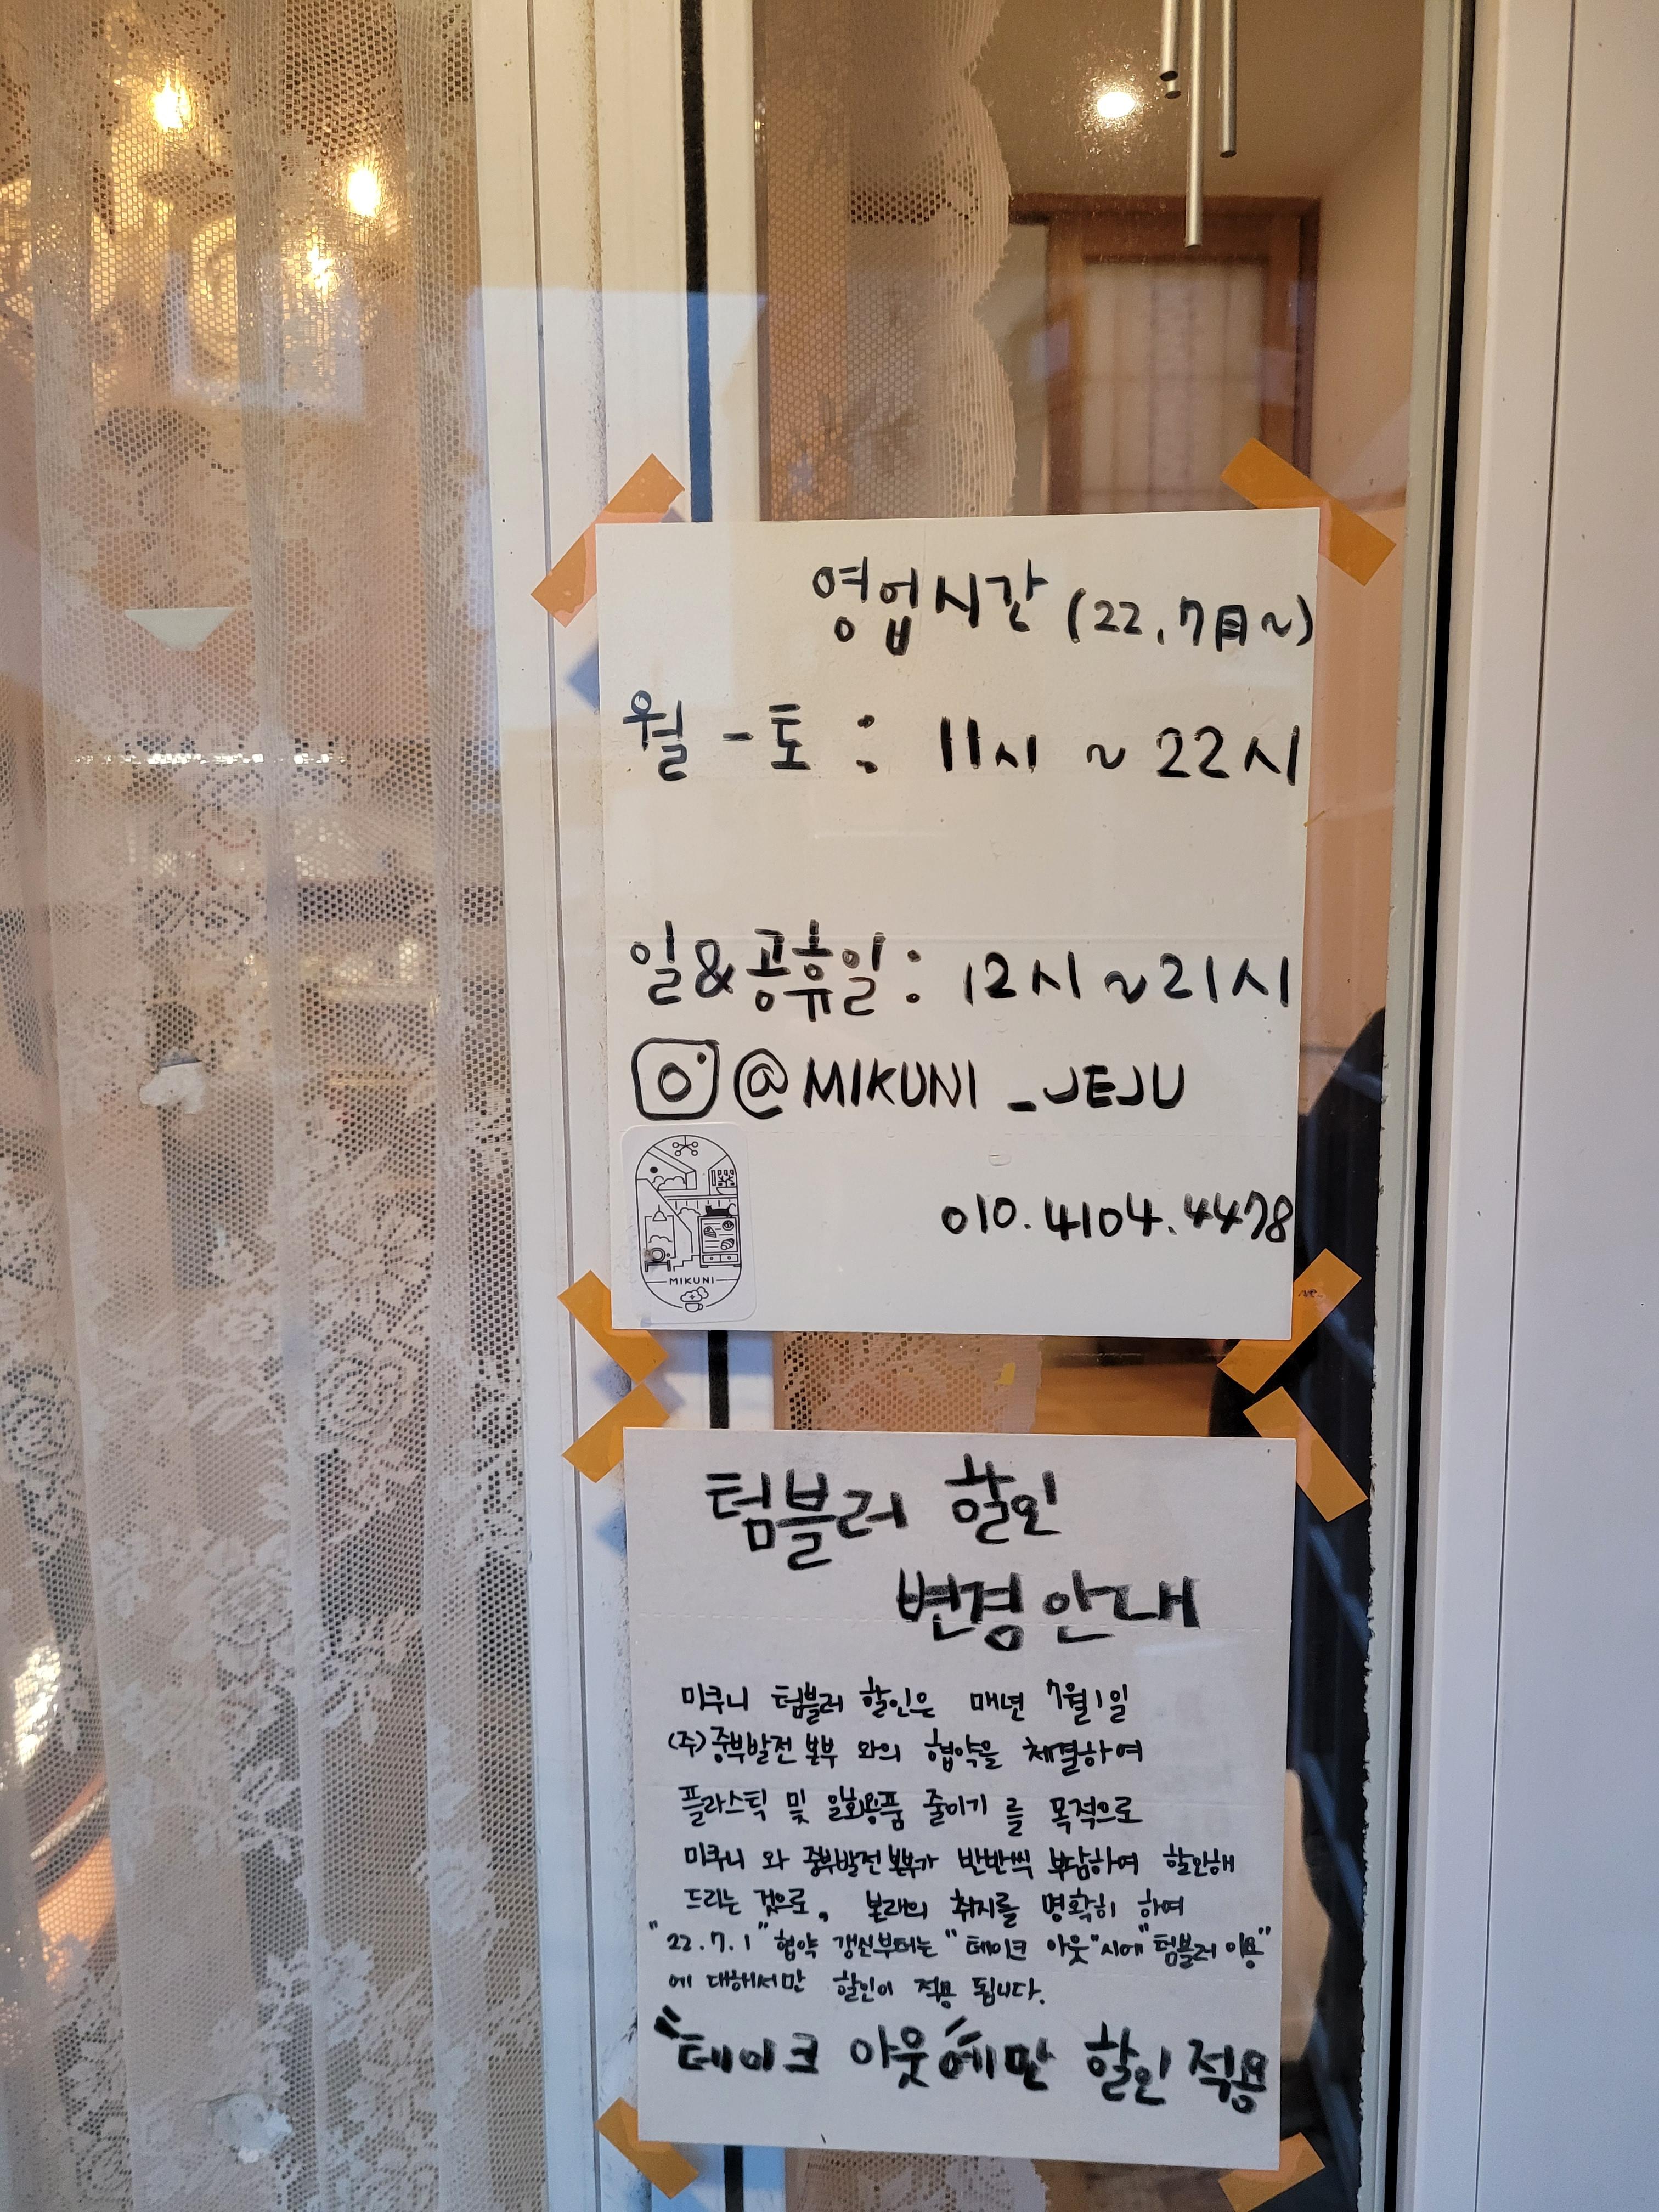 영업시간 (22.7月~)
월-토 : 11시 ~ 22시
일&공휴일: 12시~21시
@MIKUNI_JEJU
MIKUNI
010.4104.4478
텀블러 할인
변경안내
미쿠니 텀블러 할인은 매년 7월1일
(주)중부발전본부 와의 협약을 체결하여
플라스틱 및 일회용품 줄이기 를 목적으로
미쿠니 와 중부발전본부가 반반씩 부담하여 할인해
드리는 것으로, 본래의 취지를 명확히 하여
"22.7.1" 협약 갱신부터는 "테이크 아웃"시에 "텀블러 이용"
에 대해서만 할인이 적용 됩니다.
"테이크 아웃"에만 할인 적용